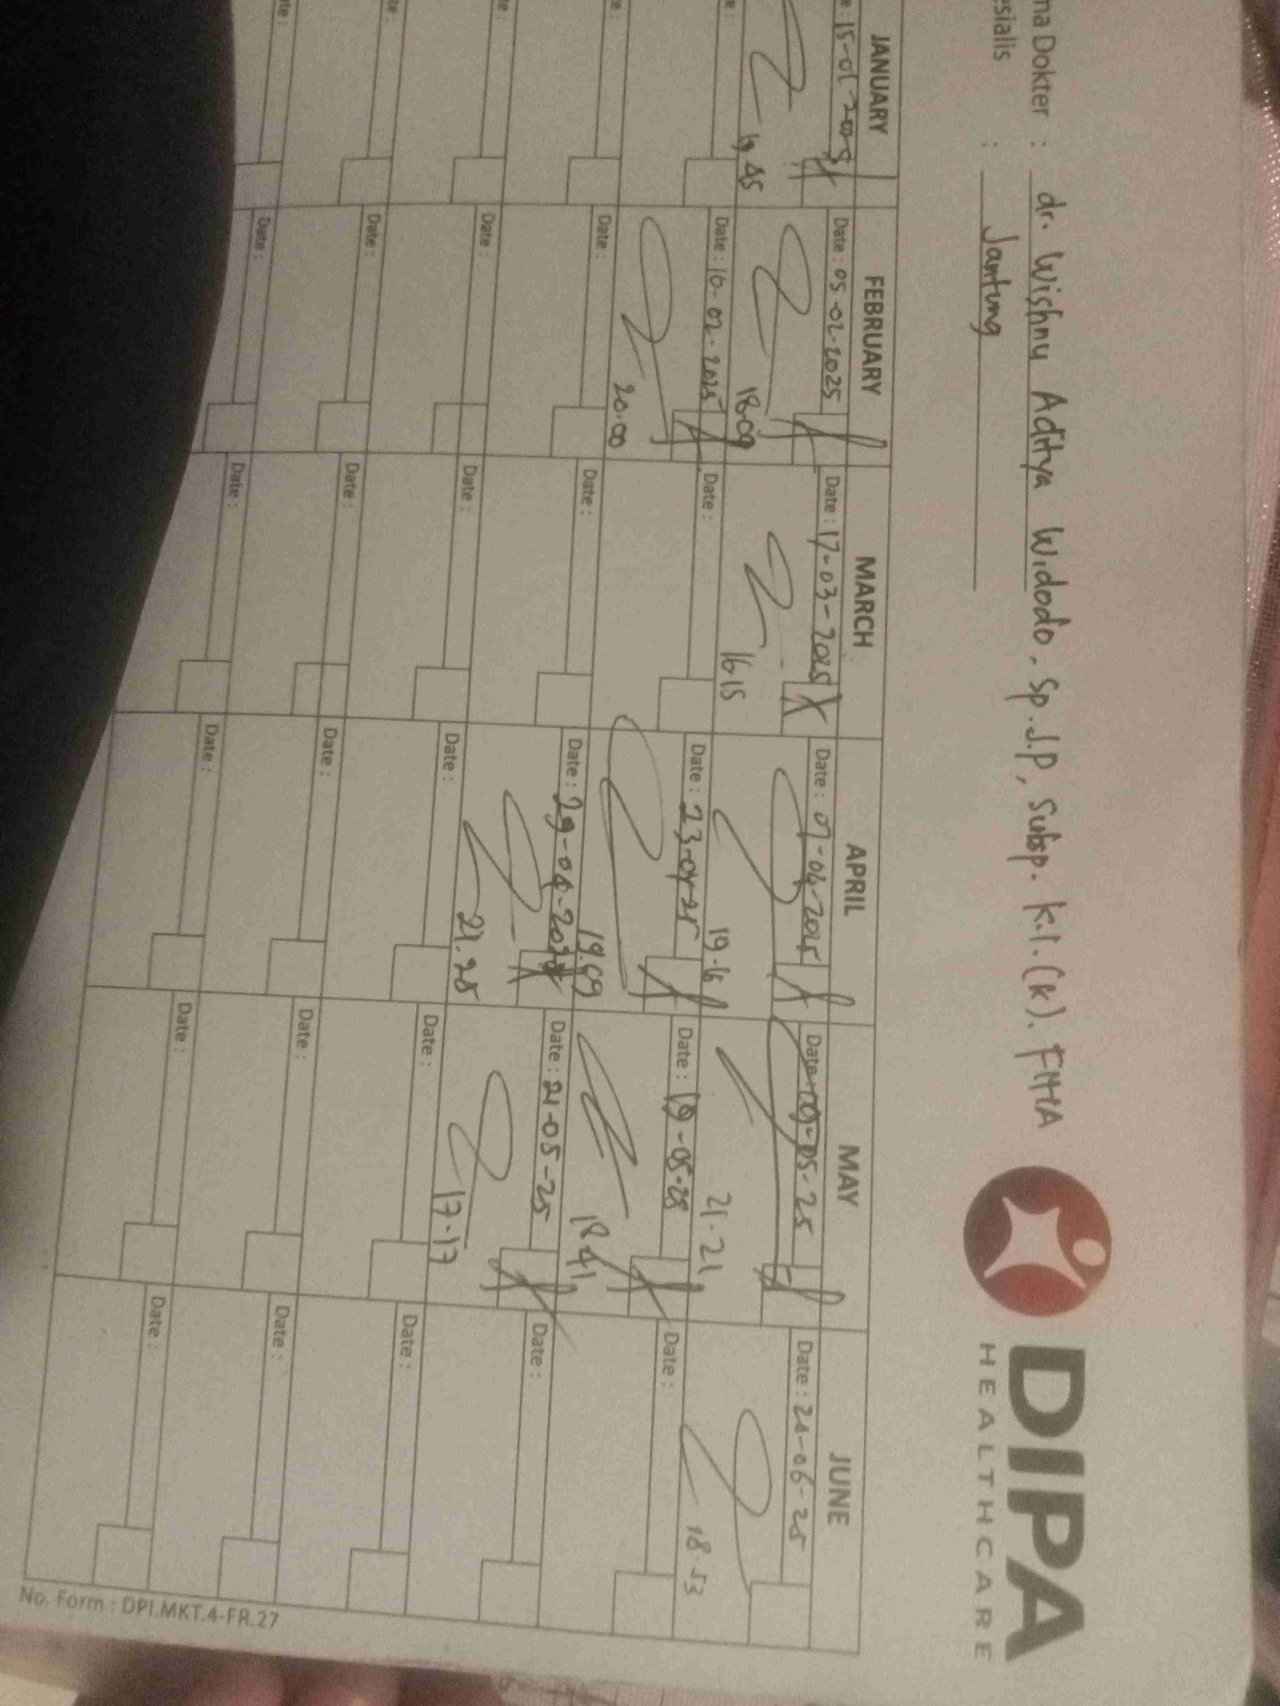 DIPA
HEALTHCARE
na Dokter : dr. Wishnu Aditya Widodo. Sp.J.P, Subsp. K.I.(K). FIHA
esialis : Jantung
JANUARY FEBRUARY MARCH APRIL MAY JUNE
e: 15-01 2025 Date: 05-02-2025 Date: 17-03-2025 Date: 07-04-2025 Date: 09-05-25 Date: 24-06-25
19.45 18.09 16.15 19.16 21.21 18.53
e: Date: 10-02-2025 Date: Date: 23-04-25 Date: 19-05-25 Date:
20.00 19.09 18.41
e: Date: Date: Date: 29-04-2025 Date: 21-05-25 Date:
21.25 17.17
te: Date: Date: Date: Date: Date:
te: Date: Date: Date: Date: Date:
ate: Date: Date: Date: Date: Date:
No. Form : DPI.MKT.4-FR.27